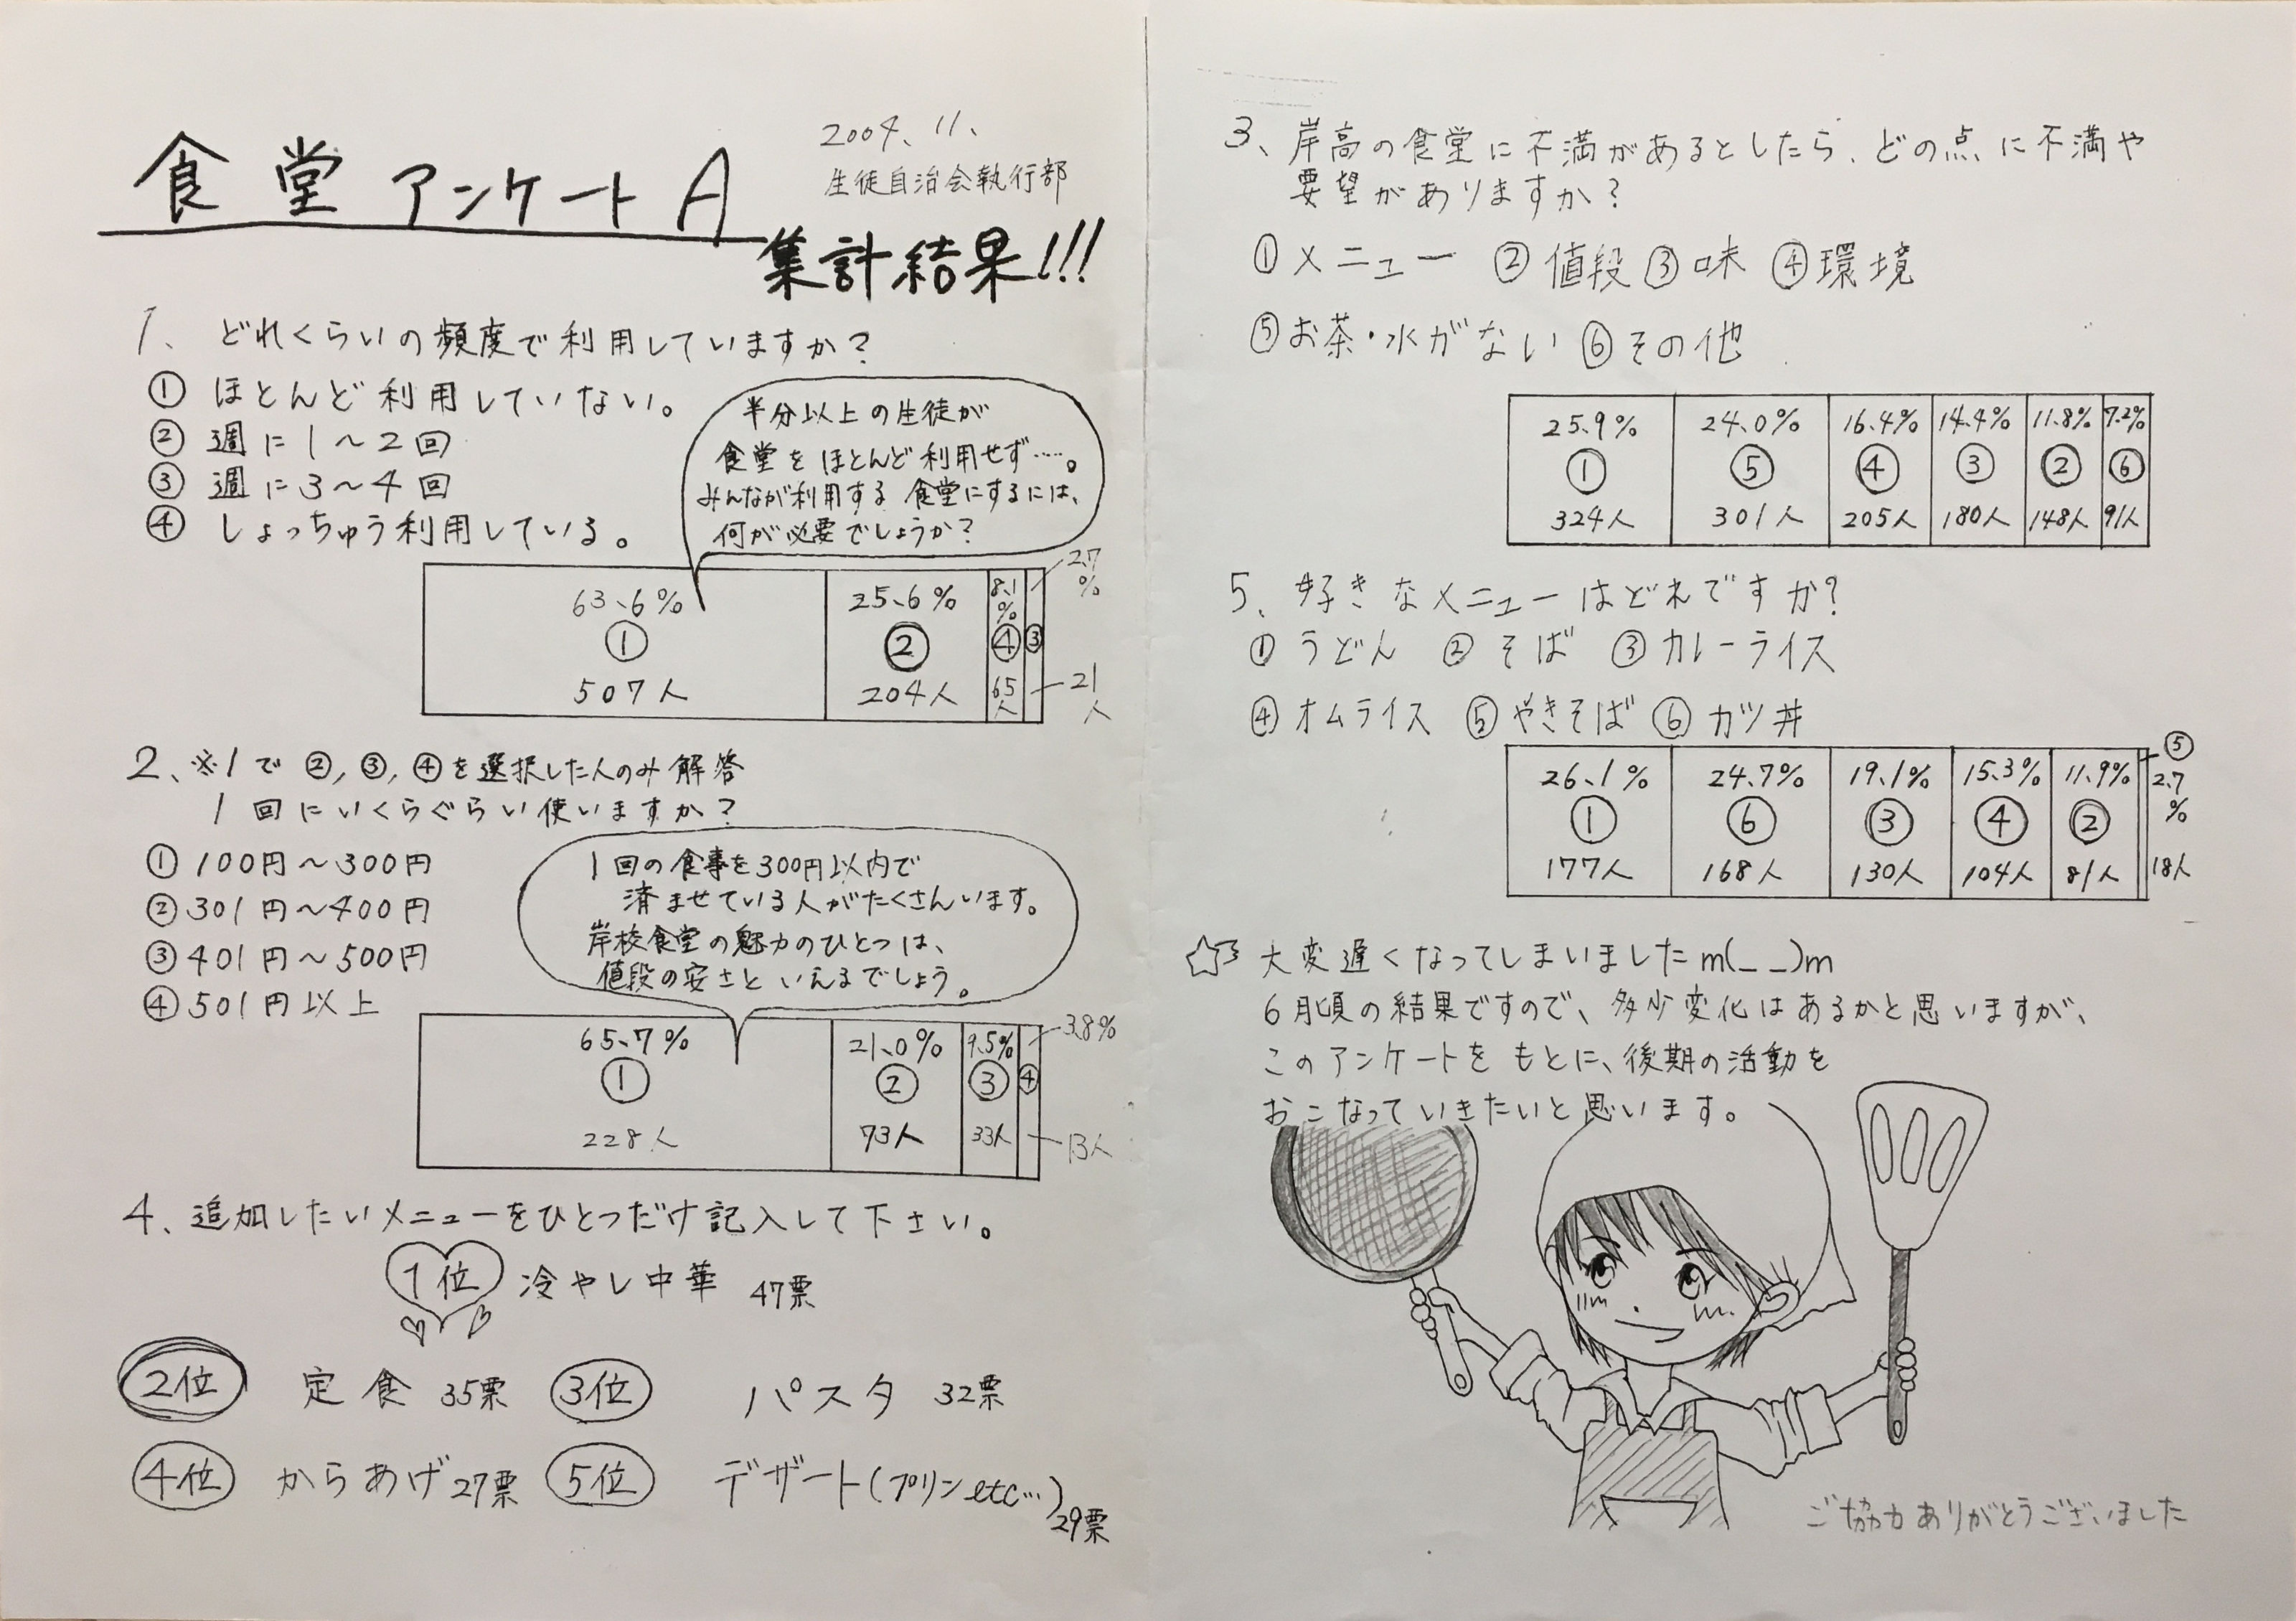 食堂アンケートA
2004、11、
生徒自治会執行部
集計結果!!!
1、どれくらいの頻度で利用していますか?
① ほとんど利用していない。
② 週に1〜2回
③ 週に3〜4回
④ しょっちゅう利用している。
半分以上の生徒が
食堂をほとんど利用せず……。
みんなが利用する食堂にするには、
何が必要でしょうか?
63.6% 25.6% 8.1% 2.7%
① ② ④ ③
507人 204人 65人 21人
2、※1で②,③,④を選択した人のみ解答
1回にいくらぐらい使いますか?
① 100円〜300円
② 301円〜400円
③ 401円〜500円
④ 501円以上
1回の食事を300円以内で
済ませている人がたくさんいます。
岸校食堂の魅力のひとつは、
値段の安さといえるでしょう。
65.7% 21.0% 9.5% 3.8%
① ② ③ ④
228人 73人 33人 13人
4、追加したいメニューをひとつだけ記入して下さい。
1位 冷やし中華 47票
2位 定食 35票 3位 パスタ 32票
4位 からあげ 27票 5位 デザート(プリンetc…) 29票
3、岸高の食堂に不満があるとしたら、どの点に不満や
要望がありますか?
①メニュー ②値段 ③味 ④環境
⑤お茶・水がない ⑥その他
25.9% 24.0% 16.4% 14.4% 11.8% 7.2%
① ⑤ ④ ③ ② ⑥
324人 301人 205人 180人 148人 91人
5、好きなメニューはどれですか?
① うどん ② そば ③ カレーライス
④ オムライス ⑤ やきそば ⑥ カツ丼
26.1% 24.7% 19.1% 15.3% 11.9% 2.7%
① ⑥ ③ ④ ② ⑤
177人 168人 130人 104人 81人 18人
☆ 大変遅くなってしまいましたm(_ _)m
6月頃の結果ですので、多少変化はあるかと思いますが、
このアンケートをもとに、後期の活動を
おこなっていきたいと思います。
ご協力ありがとうございました